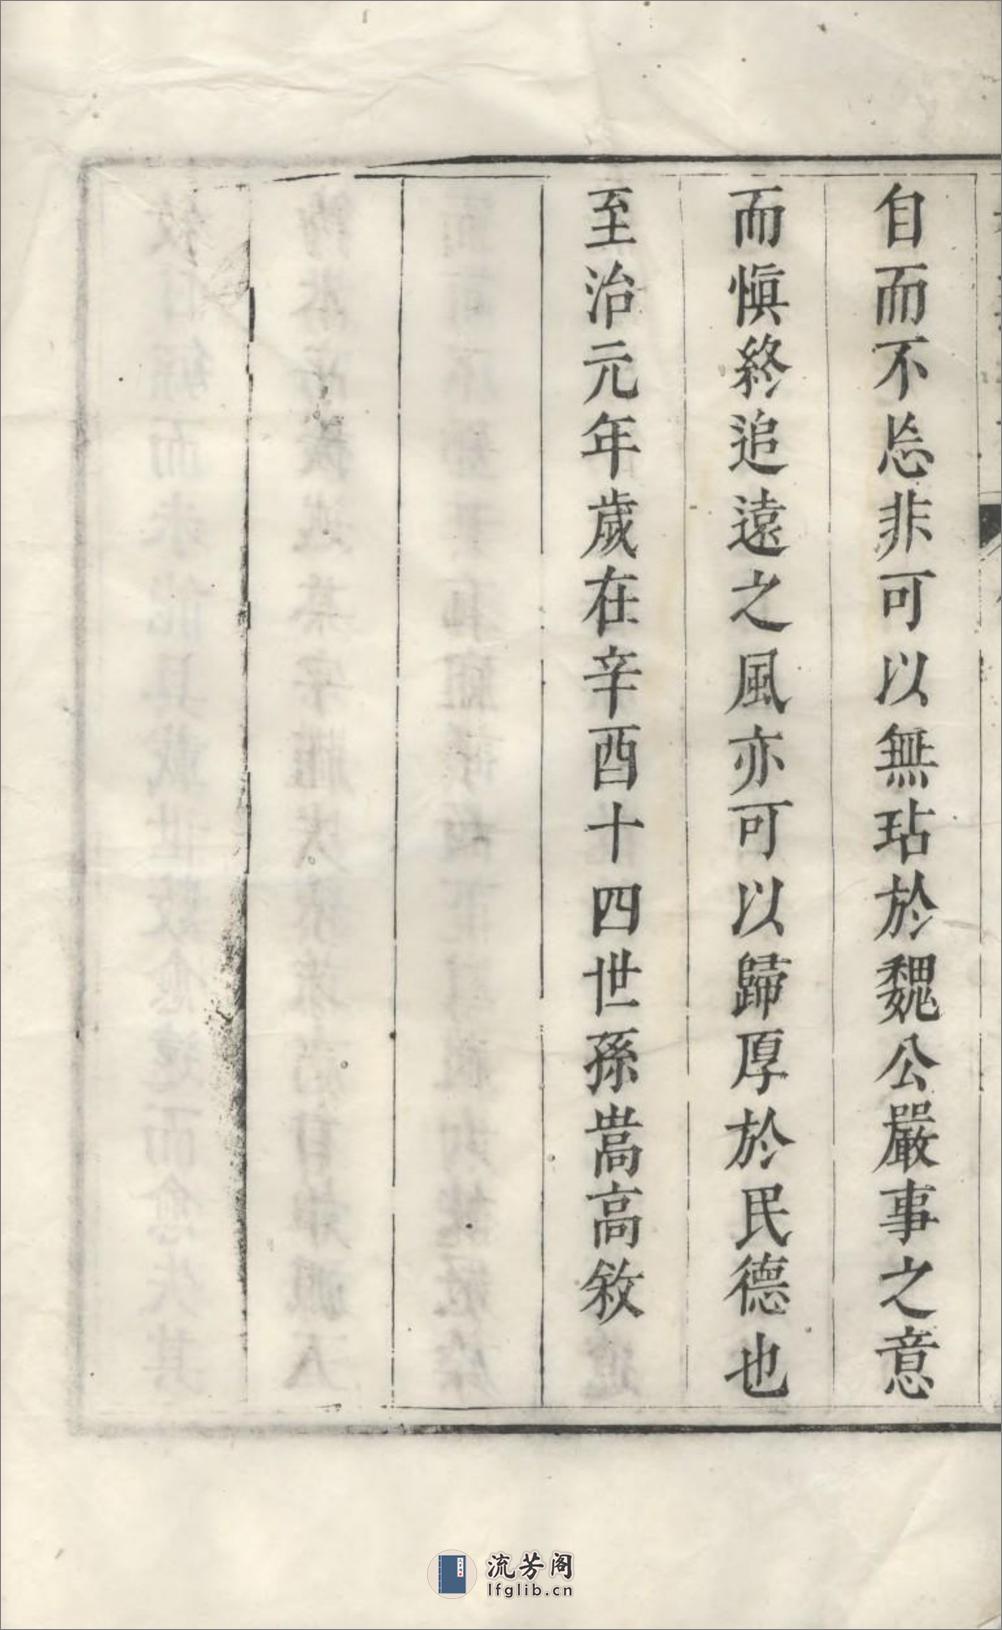 自而不忘非可以無玷於魏公嚴事之意
而愼終追遠之風亦可以歸厚於民德也
至治元年歲在辛酉十四世孫嵩高敘
流芳阁
lfglib.cn